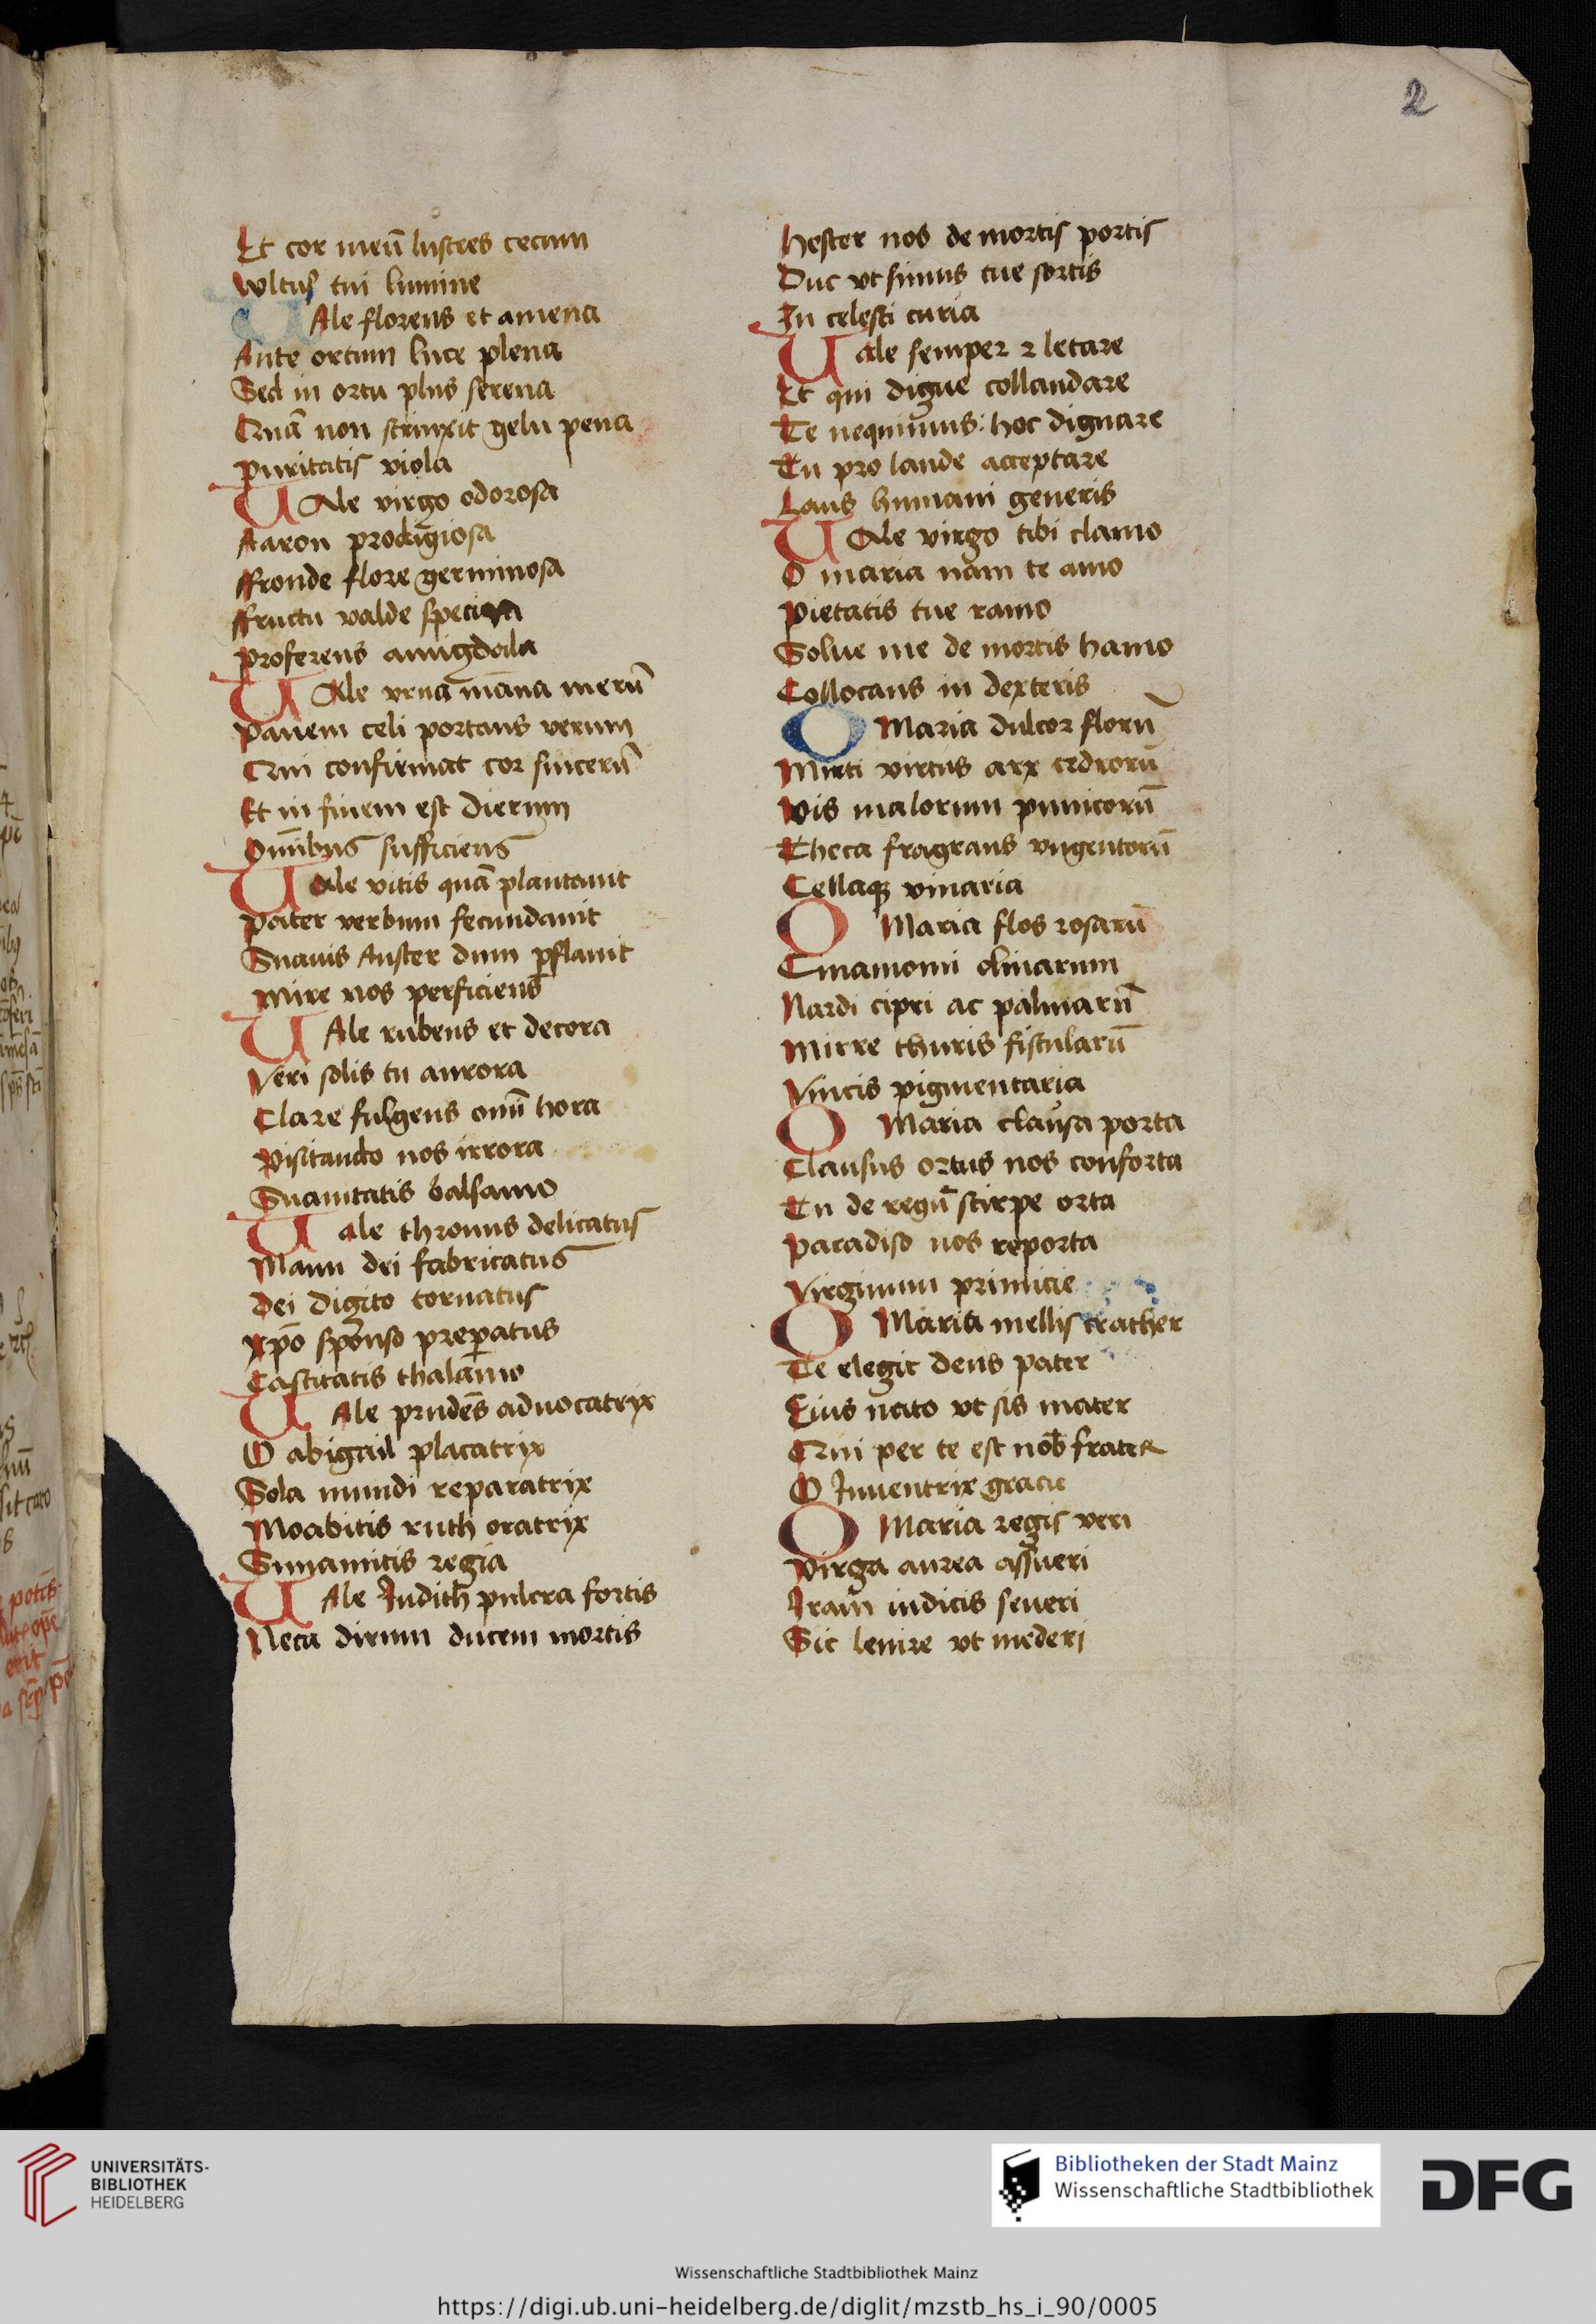 2
Et cor meū lustres cecum
Wltus tui lumine
UAle florens et amena
Ante ortum luce plena
Sed in ortu plus serena
Quā non strinxit gelu pena
Puritatis viola
UAle virgo odorosa
Aaron prodigiosa
ffronde flore germinosa
ffructu valde speciosa
Proferens amigdala
UAle vrna manna merū
Panem celi portans verum
Qui confirmat cor sincerū
Et in finem est dierum
Omībus sufficiens
UAle vitis quā plantauit
Pater verbum fecundauit
Suauis Auster dum ꝑflauit
Mire nos perficiens
UAle rubens et decora
Veri solis tu aurora
Clare fulgens omī hora
Visitando nos irrora
Suauitatis balsamo
UAle thronus delicatus
Manu dei fabricatus
Dei digito tornatus
Xpō sponso preꝑatus
Castitatis thalamo
UAle prudēs aduocatrix
O abigail placatrix
Sola mundi reparatrix
Moabitis ruth oratrix
Sunamitis regia
UAle Judith pulcra fortis
Neca dirum ducem mortis
Hester nos de mortis portis
Duc vt simus tue sortis
In celesti curia
Uale semper ⁊ letare
Et qui digne collaudare
Te nequimus: hoc dignare
Tu pro laude acceptare
Laus humani generis
UAle virgo tibi clamo
O maria nam te amo
Pietatis tue ramo
Solue me de mortis hamo
Collocans in dexteris
O Maria dulcor florū
Mirti virtus arx cedrorū
Vis malorum punicorū
Theca fragrans vngentorū
Cellaqꝫ vinaria
O Maria flos rosarū
Cinamomi oliuarum
Nardi cipri ac palmarū
Mirre thuris fistularū
Vincis pigmentaria
O Maria clausa porta
Clausus ortus nos conforta
Tu de regū stirpe orta
Paradiso nos reporta
Virginum primicie
O Maria mellis crather
Te elegit deus pater
Eius nato vt sis mater
Qui per te est nob̄ frater
O Inuentrix gracie
O Maria regis veri
Virga aurea assueri
Iram iudicis seueri
Sic lenire vt mederi
UNIVERSITÄTS-
BIBLIOTHEK
HEIDELBERG
Bibliotheken der Stadt Mainz
Wissenschaftliche Stadtbibliothek
DFG
Wissenschaftliche Stadtbibliothek Mainz
https://digi.ub.uni-heidelberg.de/diglit/mzstb_hs_i_90/0005